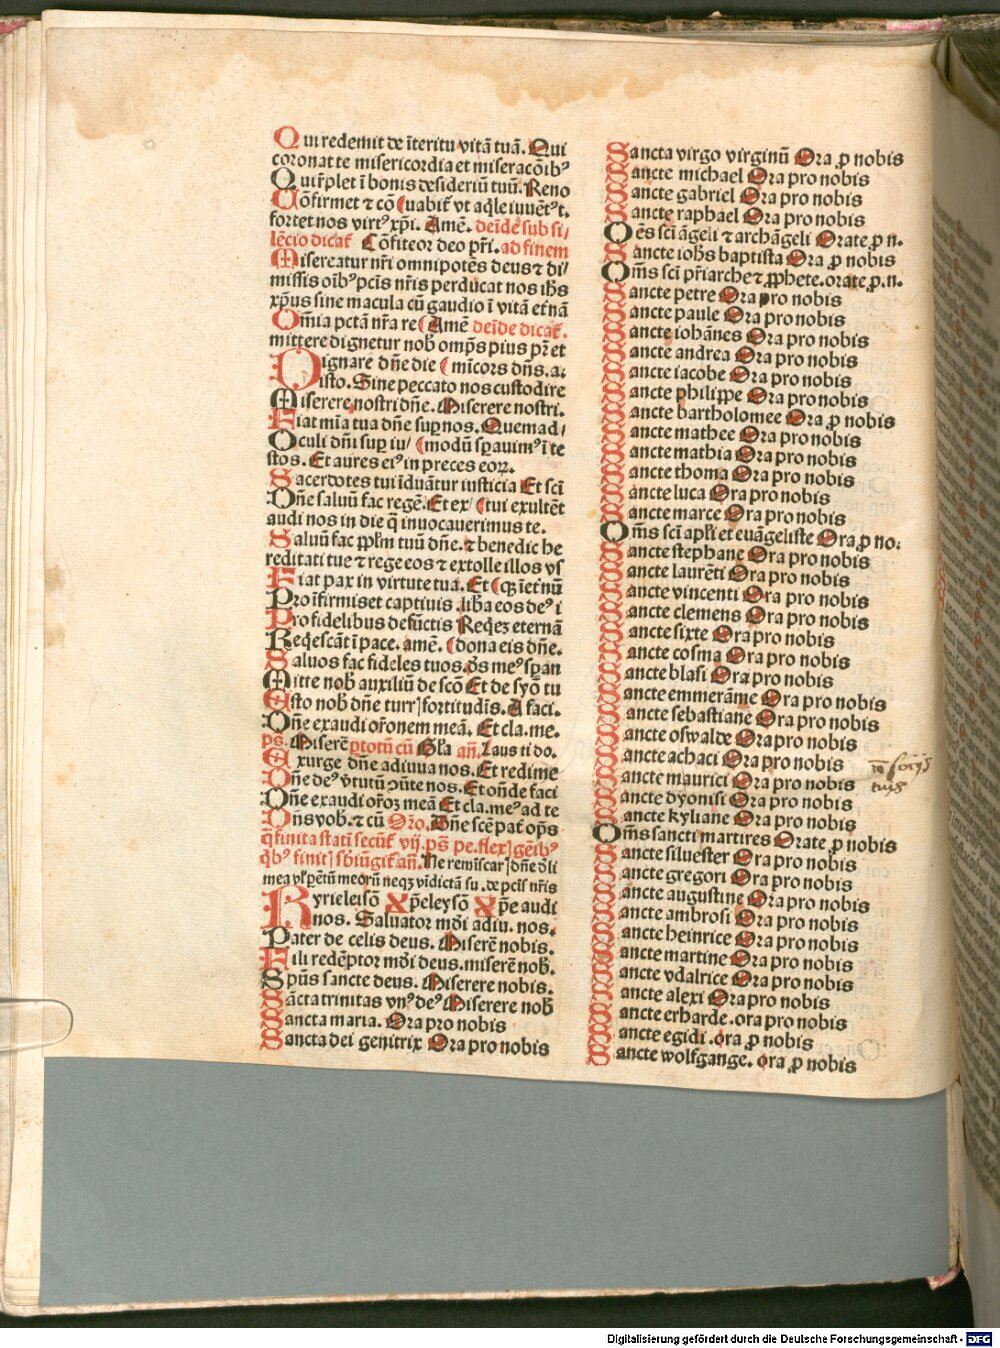 Qui redemit de īteritu vitā tuā. Qui
coronat te misericordia et miseracōibꝰ
Qui r̄plet ī bonis desideriū tuū. Reno
Cōfirmet ⁊ cō (uabit̄ vt aq̄le iuuēt'̄t.
fortet nos virtꝰ xp̄i. Amē. deīde sub si/
lēcio dicat̄ Cōfiteor deo pr̄i. ad finem
Misereatur nr̄i omnipotēs deus ⁊ di/
missis oībꝰ pcīs nr̄is perducat nos ih̄s
xp̄us sine macula cū gaudio ī vitā et̄nā
Om̄ia pctā nr̄a re (Amē deīde dicat̄.
mittere dignetur nob̄ omp̄s pius pr̄ et
Dignare dn̄e die (mīcors dn̄s. a:
isto. Sine peccato nos custodire
Miserere nostri dn̄e. Miserere nostri.
Fiat mīa tua dn̄e suꝑ nos. Quemad/
Oculi dn̄i suꝑ iu/ (modū sꝑauimꝰ ī te
stos. Et aures eiꝰ in preces eoꝝ.
Sacerdotes tui īduātur iusticia Et scī
Dn̄e saluū fac regē. Et ex/ (tui exultēt
audi nos in die q̄ inuocauerimus te.
Saluū fac pp̄lm̄ tuū dn̄e. ⁊ benedic he
reditati tue ⁊ rege eos ⁊ extolle illos vs
Fiat pax in virtute tua. Et (qꝫ iet̄nū
Pro īfirmis et captiuis .lib̄a eos deꝰ i
Pro fidelibus defūctis Reqēꝫ eternā
Reqēscāt ī pace. amē. (dona eis dn̄e.
Saluos fac fideles tuos. ds̄ meꝰ sꝑan
Mitte nob̄ auxiliū de scō Et de syō tu
Esto nob̄ dn̄e turr] fortitudīs. A faci.
Dn̄e exaudi or̄onem meā. Et cla. me.
ps. Miserē ꝑtotū cū Gl̄a añ. Laus ti do.
Exurge dn̄e adiuua nos. Et redime
Dn̄e deꝰ v̄tutū ꝯūte nos. Et on̄de faci
Dn̄e exaudi or̄oꝫ meā Et cla. meꝰ ad te
Dn̄s vob̄. ⁊ cū Or̄o. Dn̄e scē pat̄ op̄s
q̄ finita statī secūt̄ vij. pṡ pe. flex] gēibꝰ
q̄bꝰ finit] sb̄iūgit̄ añ. Ne remīscar] dn̄e d̄li
mea vl̄ pr̄ētū meoꝝ neqꝫ vīdictā su. de pcīs nr̄is
Kyrieleisō Xp̄eleysō Xp̄e audi
nos. Saluator mūdi adiu. nos.
Pater de celis deus. Miserē nobis.
Fili redēptor mūdi deus. miserē nob̄.
Spūs sancte deus. Miserere nobis.
Sācta trinitas vnꝰ deꝰ Miserere nob̄
Sancta maria. Ora pro nobis
Sancta dei genitrix Ora pro nobis
Sancta virgo virginū Ora ꝓ nobis
Sancte michael Ora pro nobis
Sancte gabriel Ora pro nobis
Sancte raphael Ora pro nobis
Oēs scī āgeli ⁊ archāgeli Orate ꝓ n.
Sancte ioh̄s baptista Ora ꝓ nobis
Om̄s scī pr̄iarche ⁊ ꝓphete. orate ꝓ. n.
Sancte petre Ora pro nobis
Sancte paule Ora pro nobis
Sancte iohānes Ora pro nobis
Sancte andrea Ora pro nobis
Sancte iacobe Ora pro nobis
Sancte philippe Ora pro nobis
Sancte bartholomee Ora ꝓ nobis
Sancte mathee Ora pro nobis
Sancte mathia Ora pro nobis
Sancte thoma Ora pro nobis
Sancte luca Ora pro nobis
Sancte marce Ora pro nobis
Om̄s scī apl̄i et euāgeliste Ora ꝓ no:
Sancte stephane Ora pro nobis
Sancte laurēti Ora pro nobis
Sancte vincenti Ora pro nobis
Sancte clemens Ora pro nobis
Sancte sixte Ora pro nobis
Sancte cosma Ora pro nobis
Sancte blasi Ora pro nobis
Sancte emmerāme Ora pro nobis
Sancte sebastiane Ora pro nobis
Sancte oswalde Ora pro nobis
Sancte achaci Ora pro nobis
Sancte maurici Ora pro nobis
Sancte dyonisi Ora pro nobis
Sancte kyliane Ora pro nobis
Om̄s sancti martires Orate ꝓ nobis
Sancte siluester Ora pro nobis
Sancte gregori Ora pro nobis
Sancte augustine Ora pro nobis
Sancte ambrosi Ora pro nobis
Sancte heinrice Ora pro nobis
Sancte martine Ora pro nobis
Sancte vdalrice Ora pro nobis
Sancte alexi Ora pro nobis
Sancte erharde .ora pro nobis
Sancte egidi .ora ꝓ nobis
Sancte wolfgange. ora ꝓ nobis
Digitalisierung gefördert durch die Deutsche Forschungsgemeinschaft - DFG